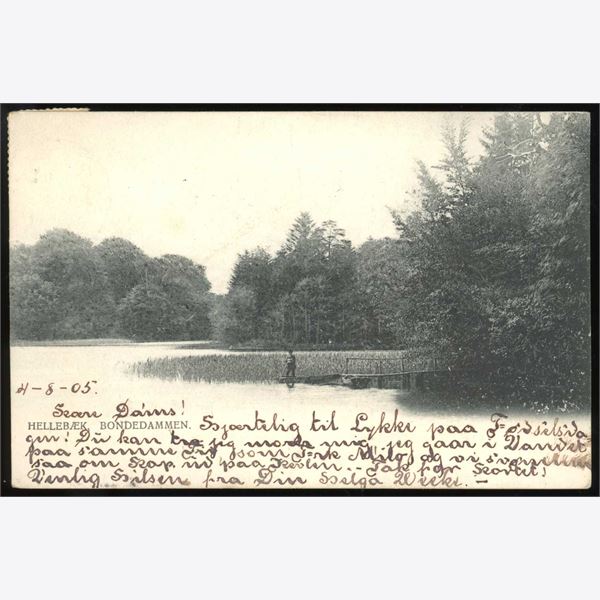 4-8-05.
Kær Dams!
HELLEBÆK. BONDEDAMMEN.
Hjærtelig til Lykke paa Fødselsda-
gen! Du kan tro jeg morer mig, jeg gaar i Vandet
paa samme Tid som Frk og vi svømme
saa om Kap ud paa Tak for Kortet!
Venlig Hilsen fra Din Helga